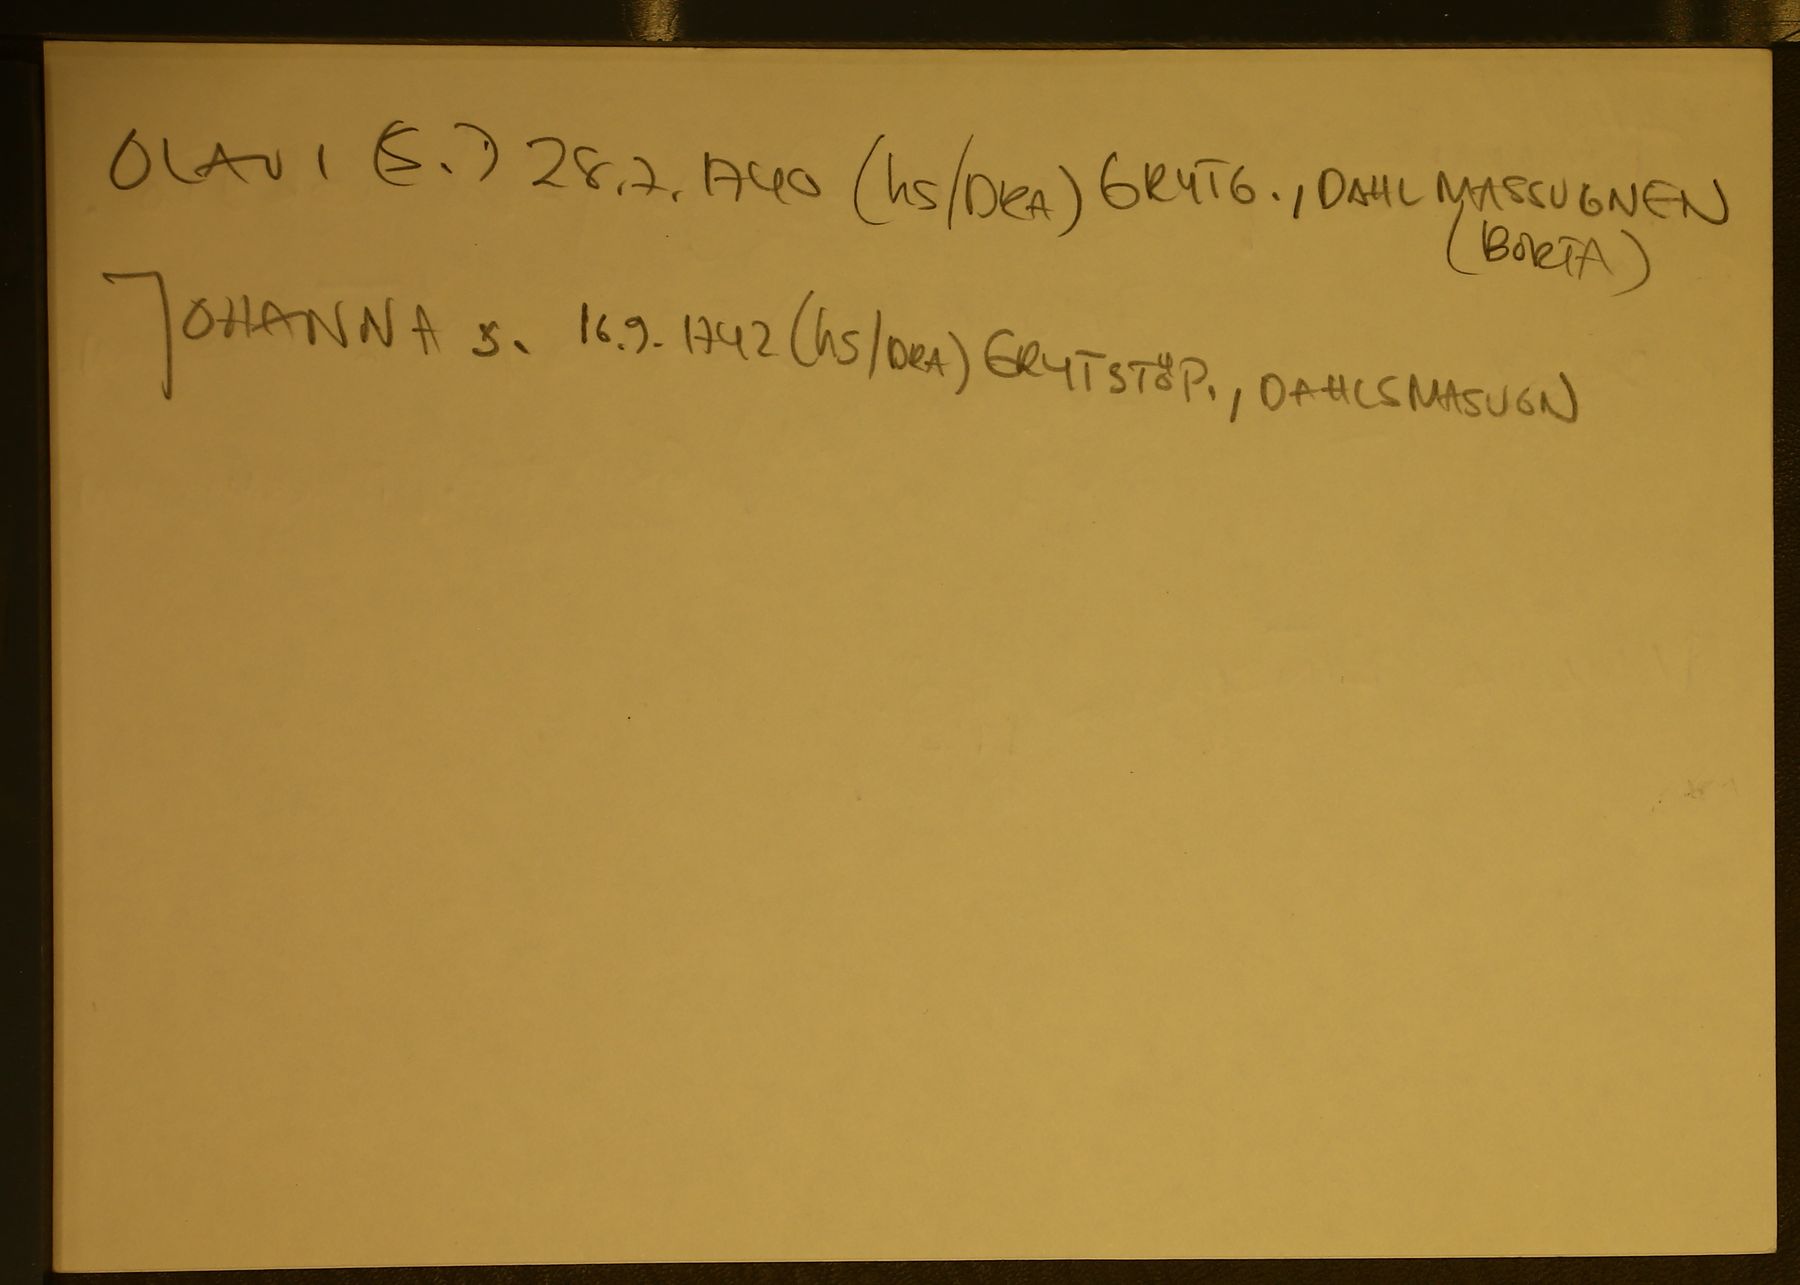 OLAVI (S.) 28.7.1740 (hs/DRA) GRYTG., DAHL MASSUGNEN
(BORTA)
JOHANNA s. 16.9.1742 (hs/DRA) GRYTSTÖP., DAHLSMASUGN